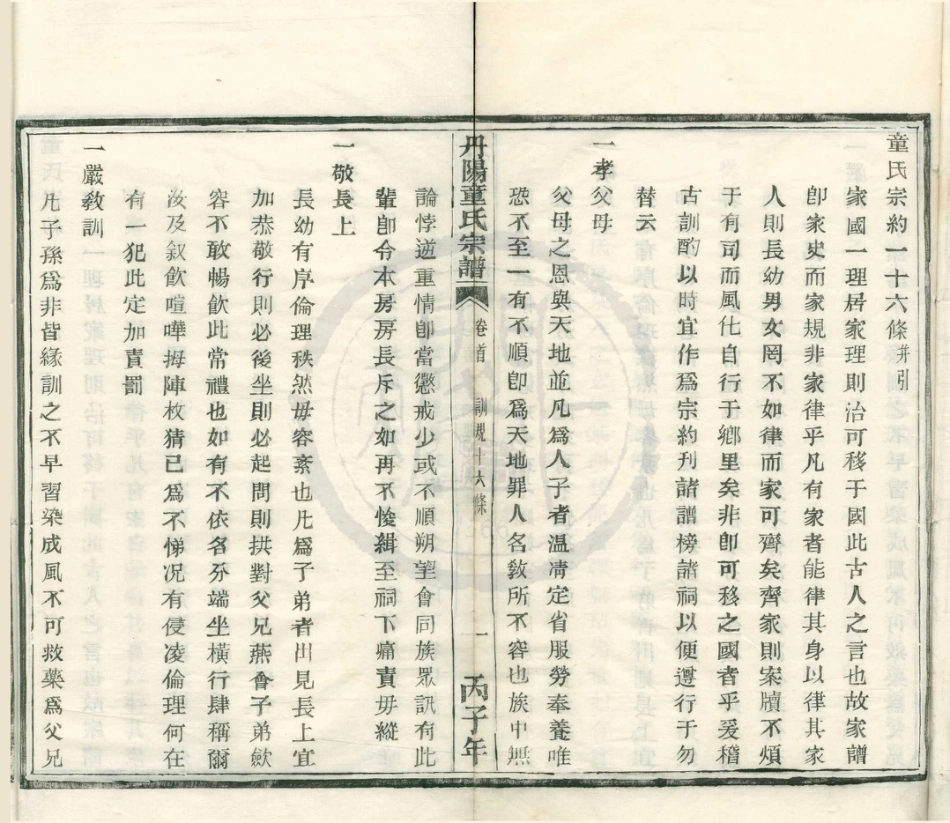 童氏宗約一十六條并引
家國一理居家理則治可移于國此古人之言也故家譜
卽家史而家規非家律乎凡有家者能律其身以律其家
人則長幼男女罔不如律而家可齊矣齊家則案牘不煩
于有司而風化自行于鄉里矣非卽可移之國者乎爰稽
古訓酌以時宜作爲宗約刋諸譜榜諸祠以便遵行于勿
替云
一孝父母
父母之恩與天地並凡爲人子者溫凊定省服勞奉養唯
恐不至一有不順卽爲天地罪人名敎所不容也族中無
論悖逆重情卽當懲戒少或不順朔望會同族眾訊有此
輩卽令本房房長斥之如再不悛緝至祠下痛責毋縱
一敬長上
長幼有序倫理秩然毋容紊也凢爲子弟者出見長上宜
加恭敬行則必後坐則必起問則拱對父兄燕會子弟歛
容不敢暢飮此常禮也如有不依名分端坐橫行肆稱爾
汝及叙飮喧嘩拇陣枚猜已爲不悌况有侵凌倫理何在
有一犯此定加責罰
一嚴敎訓
凢子孫爲非皆緣訓之不早習染成風不可救藥爲父兄
丹陽童氏宗譜
卷首
訓規十六條
一
丙子年